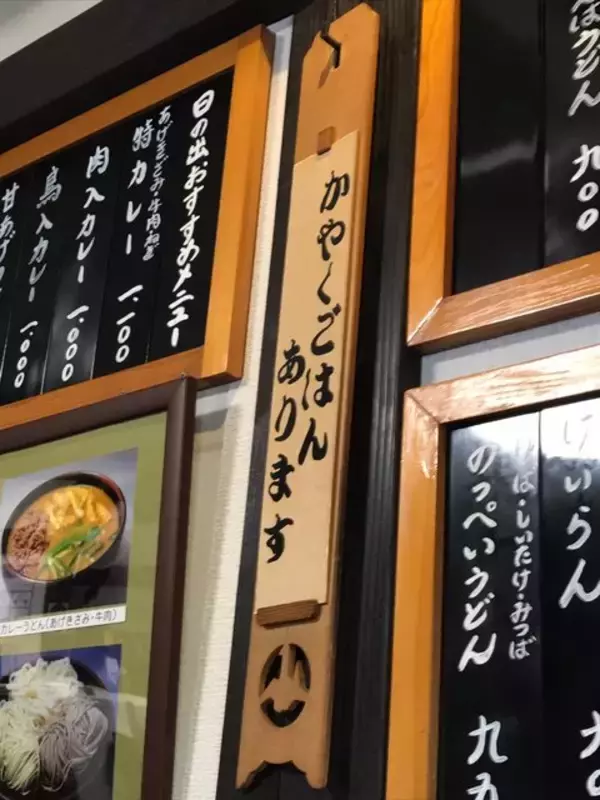 日の出おすすめメニュー
あげきざみ・牛肉
特カレー 一、一〇〇
肉入カレー 一、〇〇〇
鳥入カレー 一、〇〇〇
甘あげ
かやくごはん
あります
カレーうどん(あげきざみ・牛肉)
うどん 九〇〇
けいらん
しいたけ・みつば
のっぺいうどん 九